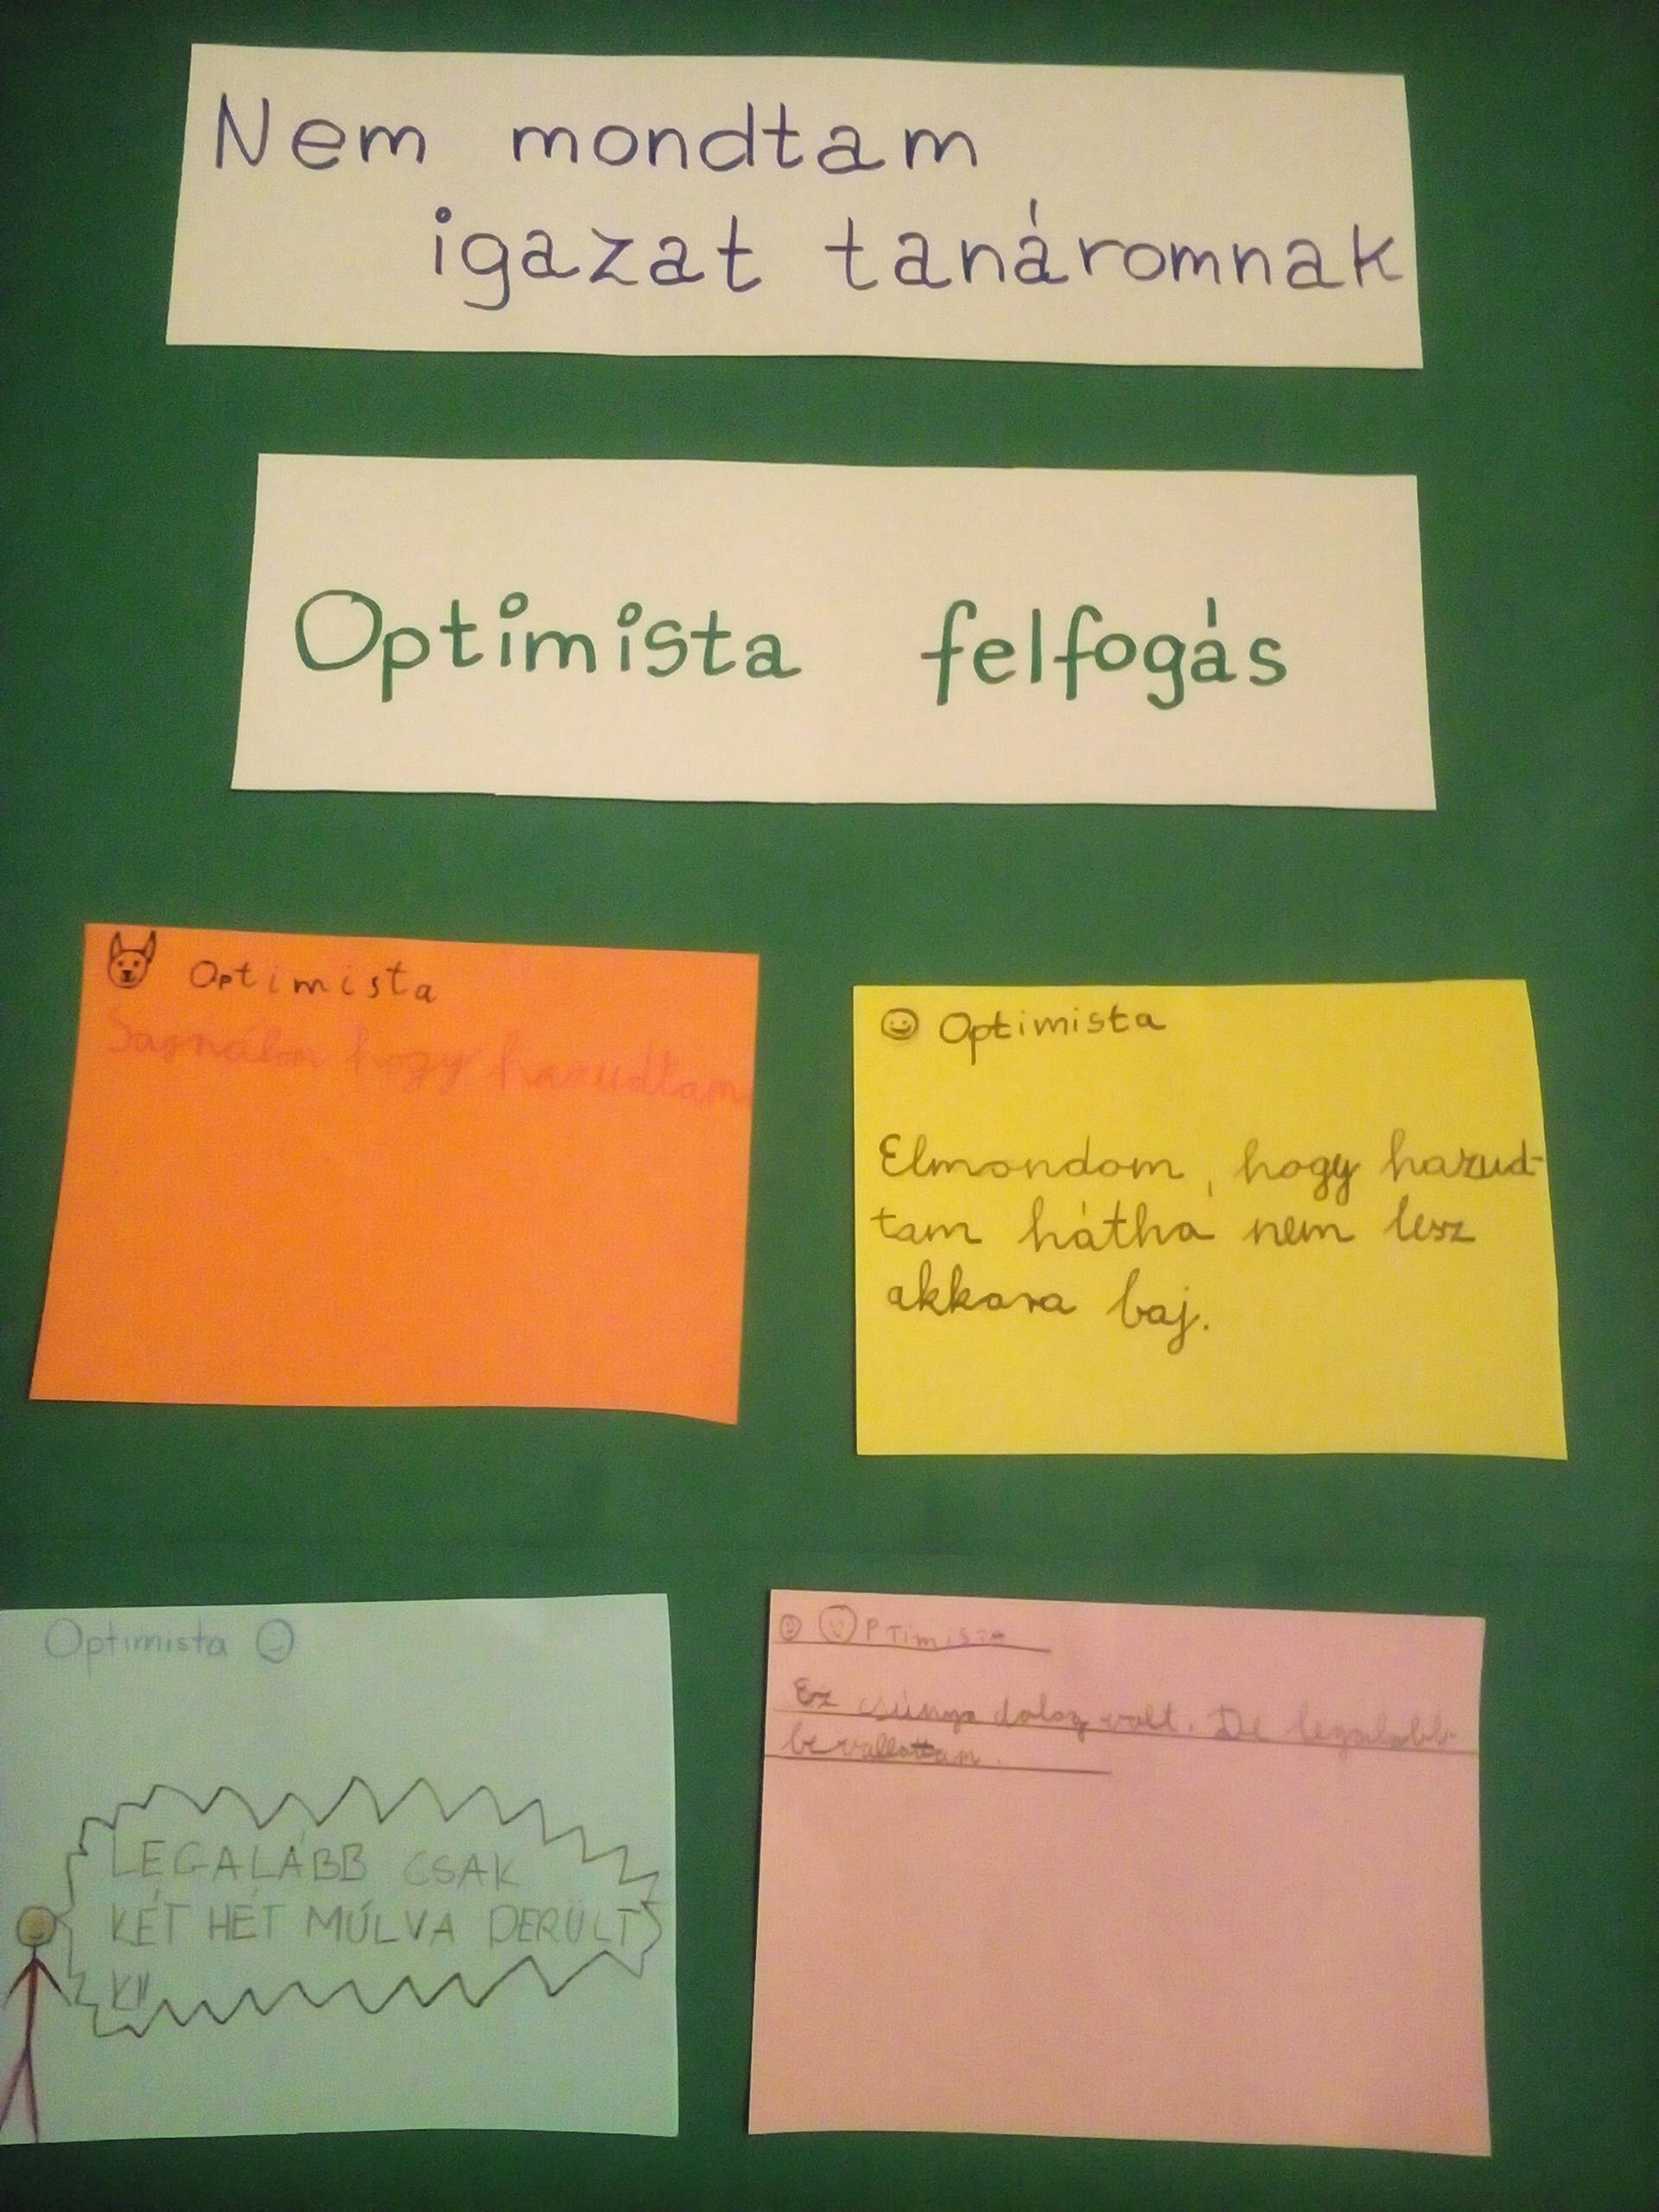 Nem mondtam
igazat tanáromnak
Optimista felfogás
Optimista
Sajnálom hogy hazudtam.
Optimista
Elmondom, hogy hazud-
tam hátha nem lesz
akkora baj.
Optimista
LEGALÁBB CSAK
KÉT HÉT MÚLVA DERÜLT
KI!
OPTimiSTA
Ez csúnya dolog volt. De legalább
bevallottam.